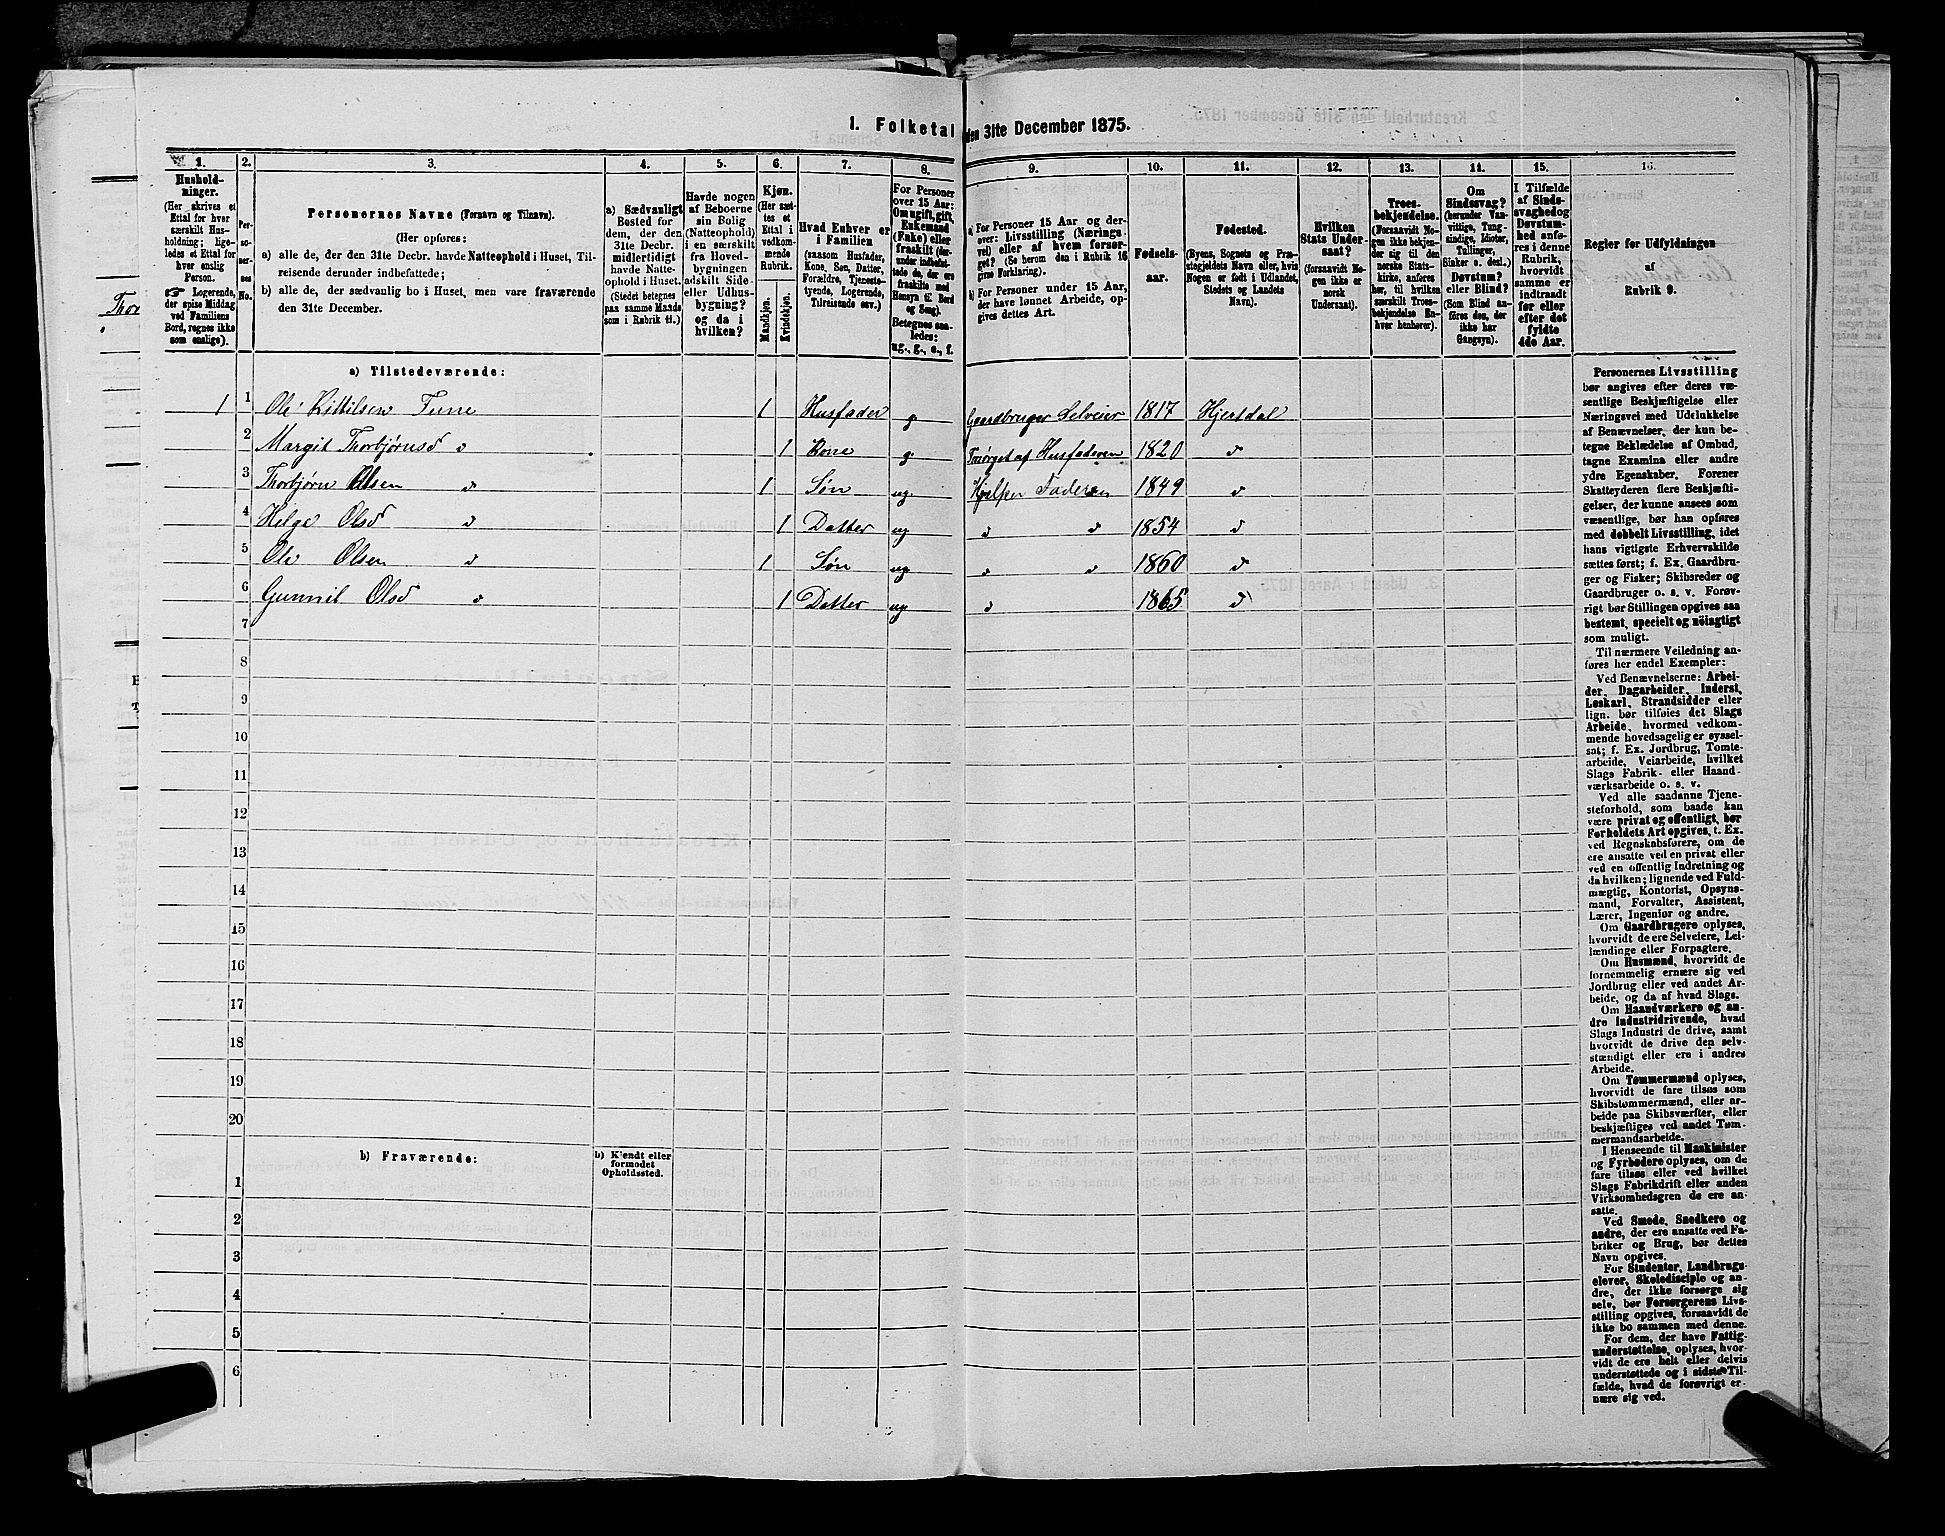 1. Folketal den 31te December 1875.
1. 2. 3. 4. 5. 6. 7. 8. 9. 10. 11. 12. 13. 14. 15. 16.
Husholdninger.
(Her skrives et
Ettal for hver
særskilt Husholdning; ligeledes et Ettal for
hver enslig
Person.
☞ Logerende,
der spise Middag
ved Familiens
Bord, regnes ikke
som enslige).
Personernes No.
Personernes Navne (Fornavn og Tilnavn).
(Her opføres:
a) alle de, der den 31te Decbr. havde Natteophold i Huset, Tilreisende derunder indbefattede;
b) alle de, der sædvanlig bo i Huset, men vare fraværende
den 31te December.
a) Sædvanligt
Bosted for
dem, der den
31te Decbr.
midlertidigt
havde Natteophold i Huset.
(Stedet betegnes
paa samme Maade
som i Rubrik 11.)
Havde nogen
af Beboerne
sin Bolig
(Natteophold)
i en særskilt
fra Hovedbygningen
adskilt Side- eller Udhusbygning?
og da i
hvilken?
Kjøn.
(Her sættes et
Ettal i
vedkommende
Rubrik.
Mandkjøn.
Kvindekjøn.
Hvad Enhver er
i Familien
(saasom Husfader,
Kone, Søn, Datter,
Forældre, Tjenestetyende, Logerende,
Tilreisende osv.)
For Personer
over 15 Aar:
Om ugift, gift,
Enkemand
(Enke) eller
fraskilt (derunder indbefattede de, der ere
fraskilte med
Hensyn til Bord
og Seng).
Betegnes saaledes:
ug., g., e., f.
a) For Personer 15 Aar og derover: Livsstilling (Næringsvei) eller af hvem forsørget? (Se herom den i Rubrik 16
givne Forklaring).
b) For Personer under 15 Aar,
der have lønnet Arbeide, opgives dettes Art.
Fødselsaar.
Fødested.
(Byens, Sognets og Præstegjeldets Navn eller, hvis
Nogen er født i Udlandet,
Stedets og Landets
Navn).
Hvilken
Stats Undersaat?
(forsaavidt Nogen ikke er
norsk
Undersaat).
Troesbekjendelse.
(Forsaavidt Nogen ikke bekjender sig til den
norske Statskirke, anføres
her, til hvilken
særskilt Troesbekjendelse Enhver henhører).
Om
Sindssvag?
(herunder Vanvittige, Tungsindige, Idioter,
Tullinger,
Sinker o. desl.)
Døvstum?
eller Blind?
(Som Blind anføres den, der
ikke har
Gangsyn).
I Tilfælde
af Sindssvaghed og
Døvstumhed anføres i denne
Rubrik,
hvorvidt
samme er
indtraadt
før eller
efter det
fyldte
4de Aar.
Regler for Udfyldningen
af
Rubrik 9.
a) Tilstedeværende:
1 1 Ole Kittilsen Tune 1 Husfader g Gaardbruger Selveier 1817 Hjertdal
2 Margit Thorbjørnsd d 1 Kone g Forsørget af Husfaderen 1820 d
3 Thorbjørn Olsen d 1 Søn ug. Hjelper Faderen 1849 d
4 Helge Olsd d 1 Datter ug d d 1854 d
5 Ole Olsen d 1 Søn ug d d 1860 d
6 Gunnil Olsd d 1 Datter ug d 1865 d
7
8
9
10
11
12
13
14
15
16
17
18
19
20
b) Fraværende:
b) Kjendt eller
formodet
Opholdssted.
1
2
3
4
5
6
Personernes Livsstilling
bør angives efter deres væsentlige Beskjæftigelse eller
Næringsvei med Udelukkelse
af Benævnelser, der kun betegne Beklædelse af Ombud,
tagne Examina eller andre
ydre Egenskaber. Forener
Skatteyderen flere Beskjæftigelser, der kunne ansees som
væsentlige, bør han opføres
med dobbelt Livsstilling, idet
hans vigtigste Erhvervskilde
sættes først; f. Ex. Gaardbruger og Fisker; Skibsreder og
Gaardbruger o. s. v. Forøvrigt bør Stillingen opgives saa
bestemt, specielt og nøiagtigt
som muligt.
Til nærmere Veiledning anføres her endel Exempler:
Ved Benævnelserne: Arbeider, Dagarbeider, Inderst,
Løskarl, Strandsidder eller
lign. bør tilføies det Slags
Arbeide, hvormed vedkommende hovedsagelig er sysselsat; f. Ex. Jordbrug, Tomtearbeide, Veiarbeide, hvilket
Slags Fabrik- eller Haandværksarbeide o. s. v.
Ved alle saadanne Tjenesteforhold, som baade kan
være privat og offentligt, bør
Forholdets Art opgives, t. Ex.
ved Regnskabsførere, om de
ere ansatte ved en privat eller
ved en offentlig Indretning og
da hvilken; lignende ved Fuldmægtig, Kontorist, Opsynsmand, Forvalter, Assistent,
Lærer, Ingeniør og andre.
Om Gaardbrugere oplyses,
hvorvidt de ere Selveiere, Leilændinge eller Forpagtere.
Om Husmænd, hvorvidt de
fornemmelig ernære sig ved
Jordbrug eller ved andet Arbeide, og da af hvad Slags.
Om Haandværkere og andre Industridrivende, hvad
Slags Industri de drive, samt
hvorvidt de drive den selvstændigt eller ere i andres
Arbeide.
Om Tømmermænd oplyses,
hvorvidt de fare tilsøs som
Skibstømmermænd, eller arbeide paa Skibsværfter, eller
beskjæftiges ved andet Tømmermandsarbeide.
I Henseende til Maskinister
og Fyrbødere oplyses, om de
fare tilsøs eller ved hvilket
Slags Fabrikdrift eller anden
Virksomhedsgren de ere ansatte.
Ved Smede, Snedkere og
andre, der ere ansatte ved Fabriker og Brug, bør dettes
Navn opgives.
For Studenter, Landbrugselever, Skoledisciple og andre, der ikke forsørge sig
selv, bør Forsørgerens Livsstilling opgives, forsaavidt de
ikke bo sammen med denne.
For dem, der have Fattigunderstøttelse, oplyses, hvorvidt de ere helt eller delvis
understøttede og i sidste Tilfælde, hvad de forøvrigt ernære sig ved.